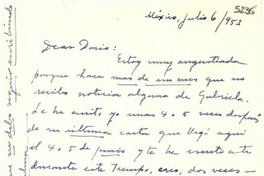 5236
México, Julio 6/953
Dear Doris:
Estoy muy angustiada
porque hace mas de un mes que no
recibo noticia alguna de Gabriela.
Le he escrito yo unas 4 o 5 veces después
de su última carta que llegó aquí
el 4 o 5 de junio y te he escrito a ti
durante este tiempo, creo, dos veces
que no debo seguir escribiendo